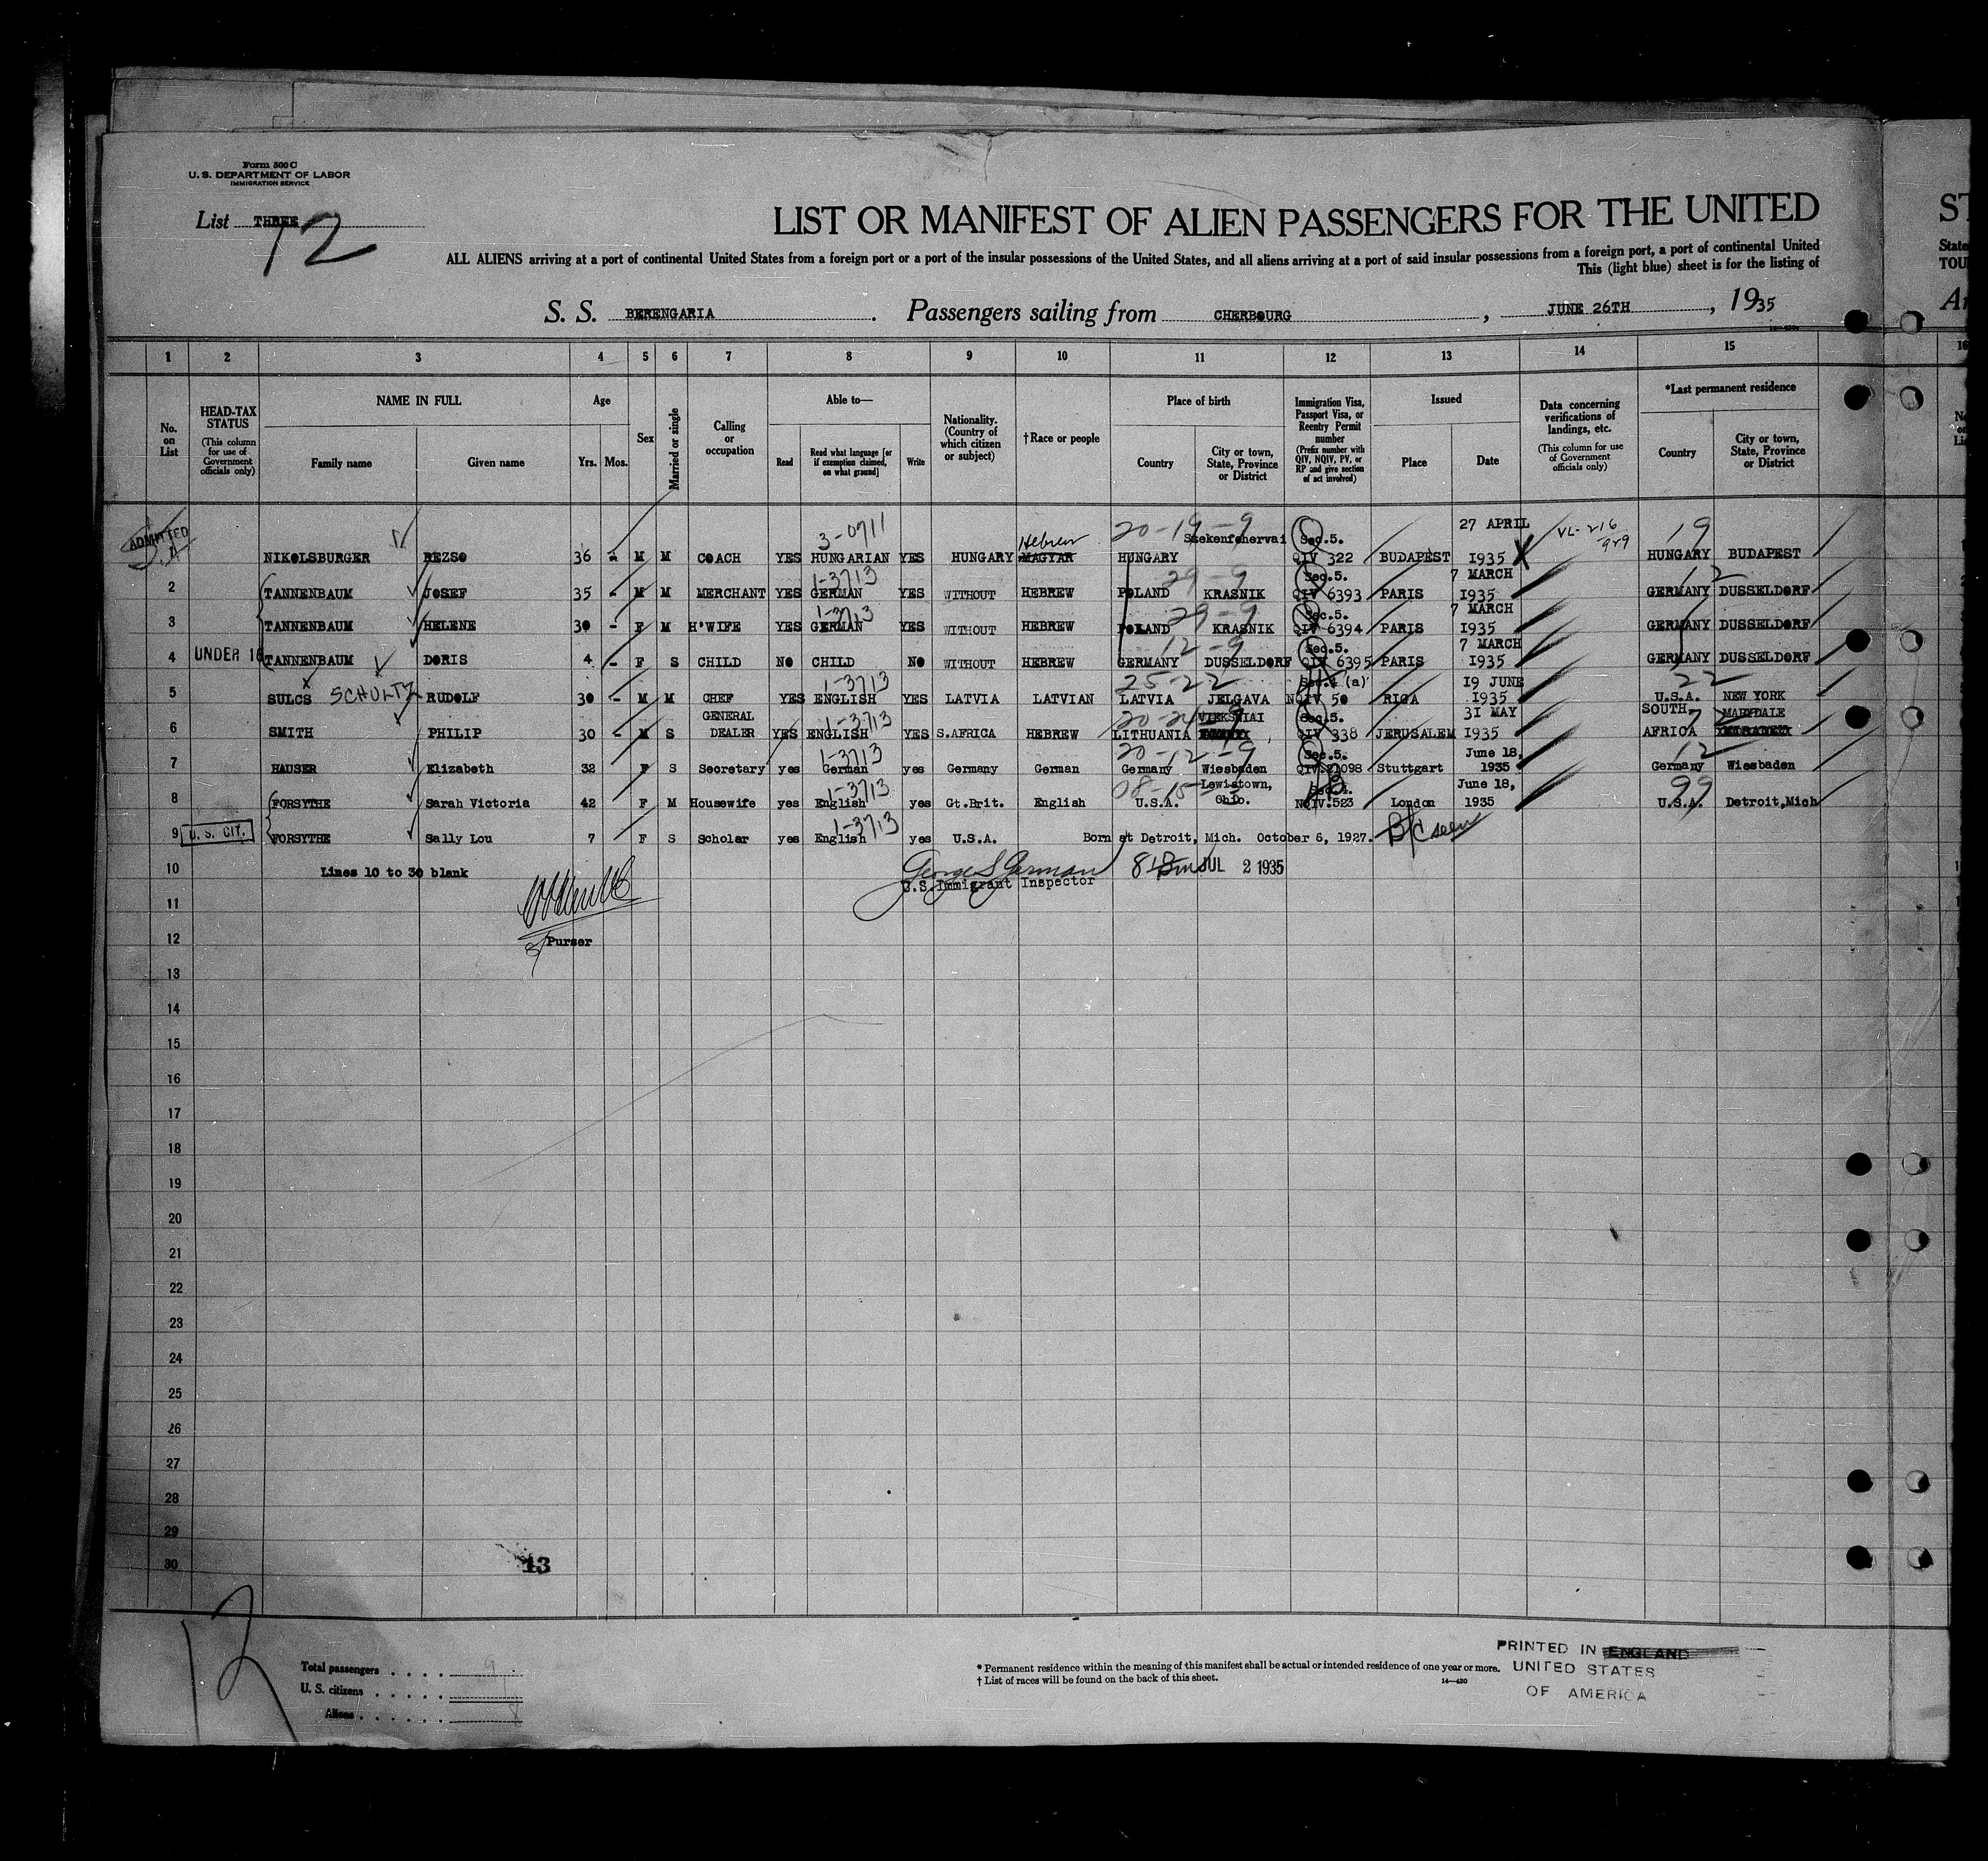 Form 500 C
U. S. DEPARTMENT OF LABOR
IMMIGRATION SERVICE
List THREE
12
LIST OR MANIFEST OF ALIEN PASSENGERS FOR THE UNITED
ST
ALL ALIENS arriving at a port of continental United States from a foreign port or a port of the insular possessions of the United States, and all aliens arriving at a port of said insular possessions from a foreign port, a port of continental United
State
This (light blue) sheet is for the listing of
TOU
S. S. BERENGARIA . Passengers sailing from CHERBOURG , JUNE 26TH , 1935
1 2 3 4 5 6 7 8 9 10 11 12 13 14 15 16
No. on List
HEAD-TAX STATUS (This column for use of Government officials only)
NAME IN FULL Family name Given name
Age Yrs. Mos.
Sex
Married or single
Calling or occupation
Able to— Read Read what language [or if exemption claimed, on what ground] Write
Nationality. (Country of which citizen or subject)
†Race or people
Place of birth Country City or town, State, Province or District
Immigration Visa, Passport Visa, or Reentry Permit number (Prefix number with QIV, NQIV, PV, or RP and give section of act involved)
Issued Place Date
Data concerning verifications of landings, etc. (This column for use of Government officials only)
*Last permanent residence Country City or town, State, Province or District
ADMITTED 3-0711 Hebrew 20-19-9 Szekenfehervai Sec.5. 27 APRIL VL-216 949 19
NIKOLSBURGER REZSO 36 - M M COACH YES HUNGARIAN YES HUNGARY MAGYAR HUNGARY QIV 322 BUDAPEST 1935 HUNGARY BUDAPEST
1-3713 29-9 Sec.5. 7 MARCH 12
2 TANNENBAUM JOSEF 35 - M M MERCHANT YES GERMAN YES WITHOUT HEBREW POLAND KRASNIK QIV 6393 PARIS 1935 GERMANY DUSSELDORF
1-3713 29-9 Sec.5. 7 MARCH
3 TANNENBAUM HELENE 30 - F M H'WIFE YES GERMAN YES WITHOUT HEBREW POLAND KRASNIK QIV 6394 PARIS 1935 GERMANY DUSSELDORF
12-9 Sec.5. 7 MARCH
4 UNDER 16 TANNENBAUM DORIS 4 - F S CHILD NO CHILD NO WITHOUT HEBREW GERMANY DUSSELDORF QIV 6395 PARIS 1935 GERMANY DUSSELDORF
1-3713 25-22 Sec.4 (a) 19 JUNE 22
5 SULCS SCHULTZ RUDOLF 30 - M M CHEF YES ENGLISH YES LATVIA LATVIAN LATVIA JELGAVA NQIV 50 RIGA 1935 U.S.A. NEW YORK
GENERAL 1-3713 VIEKSNIAI Sec.5. 31 MAY SOUTH MARYDALE
6 SMITH PHILIP 30 - M S DEALER YES ENGLISH YES S.AFRICA HEBREW LITHUANIA QIV 338 JERUSALEM 1935 AFRICA
1-3713 20-12-9 Sec.5. June 18, 12
7 HAUSER Elizabeth 32 F S Secretary yes German yes Germany German Germany Wiesbaden QIV 21098 Stuttgart 1935 Germany Wiesbaden
1-3713 08-15 Lewistown, June 18, 99
8 FORSYTHE Sarah Victoria 42 F M Housewife yes English yes Gt.Brit. English U.S.A. Ohio. NQIV.523 London 1935 U.S.A. Detroit,Mich
1-3713
9 U. S. CIT. FORSYTHE Sally Lou 7 F S Scholar yes English yes U.S.A. Born at Detroit, Mich. October 6, 1927. B/C seen
10 Lines 10 to 30 blank George S German JUL 2 1935
U.S. Immigrant Inspector
11
12 Purser
13
14
15
16
17
18
19
20
21
22
23
24
25
26
27
28
29
30
13
12
Total passengers . . . . 9
U. S. citizens . . . . .
Aliens . . . . . . 8
* Permanent residence within the meaning of this manifest shall be actual or intended residence of one year or more.
† List of races will be found on the back of this sheet.
14—430
PRINTED IN ENGLAND
UNITED STATES
OF AMERICA